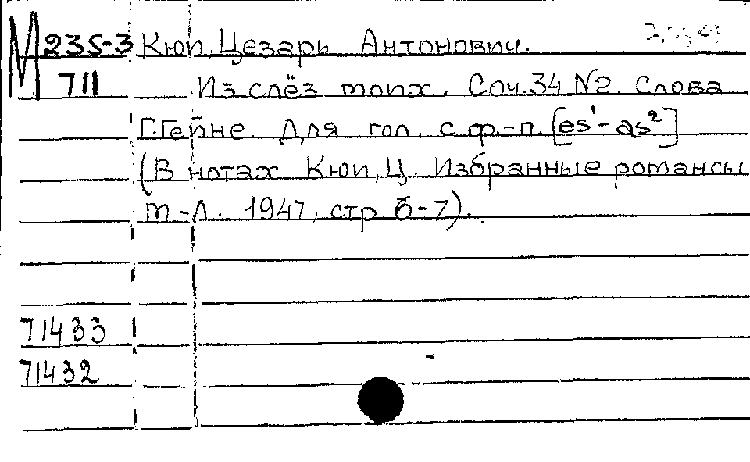 М 235-3 Кюи, Цезарь Антонович.
711 Из слёз моих. Соч. 34 №2. Слова
Г. Гейне. Для гол. с ф.-п. [es¹-as²]
(В нотах Кюи, Ц. Избранные романсы
М-Л. 1947, стр 6-7).
71433
71432